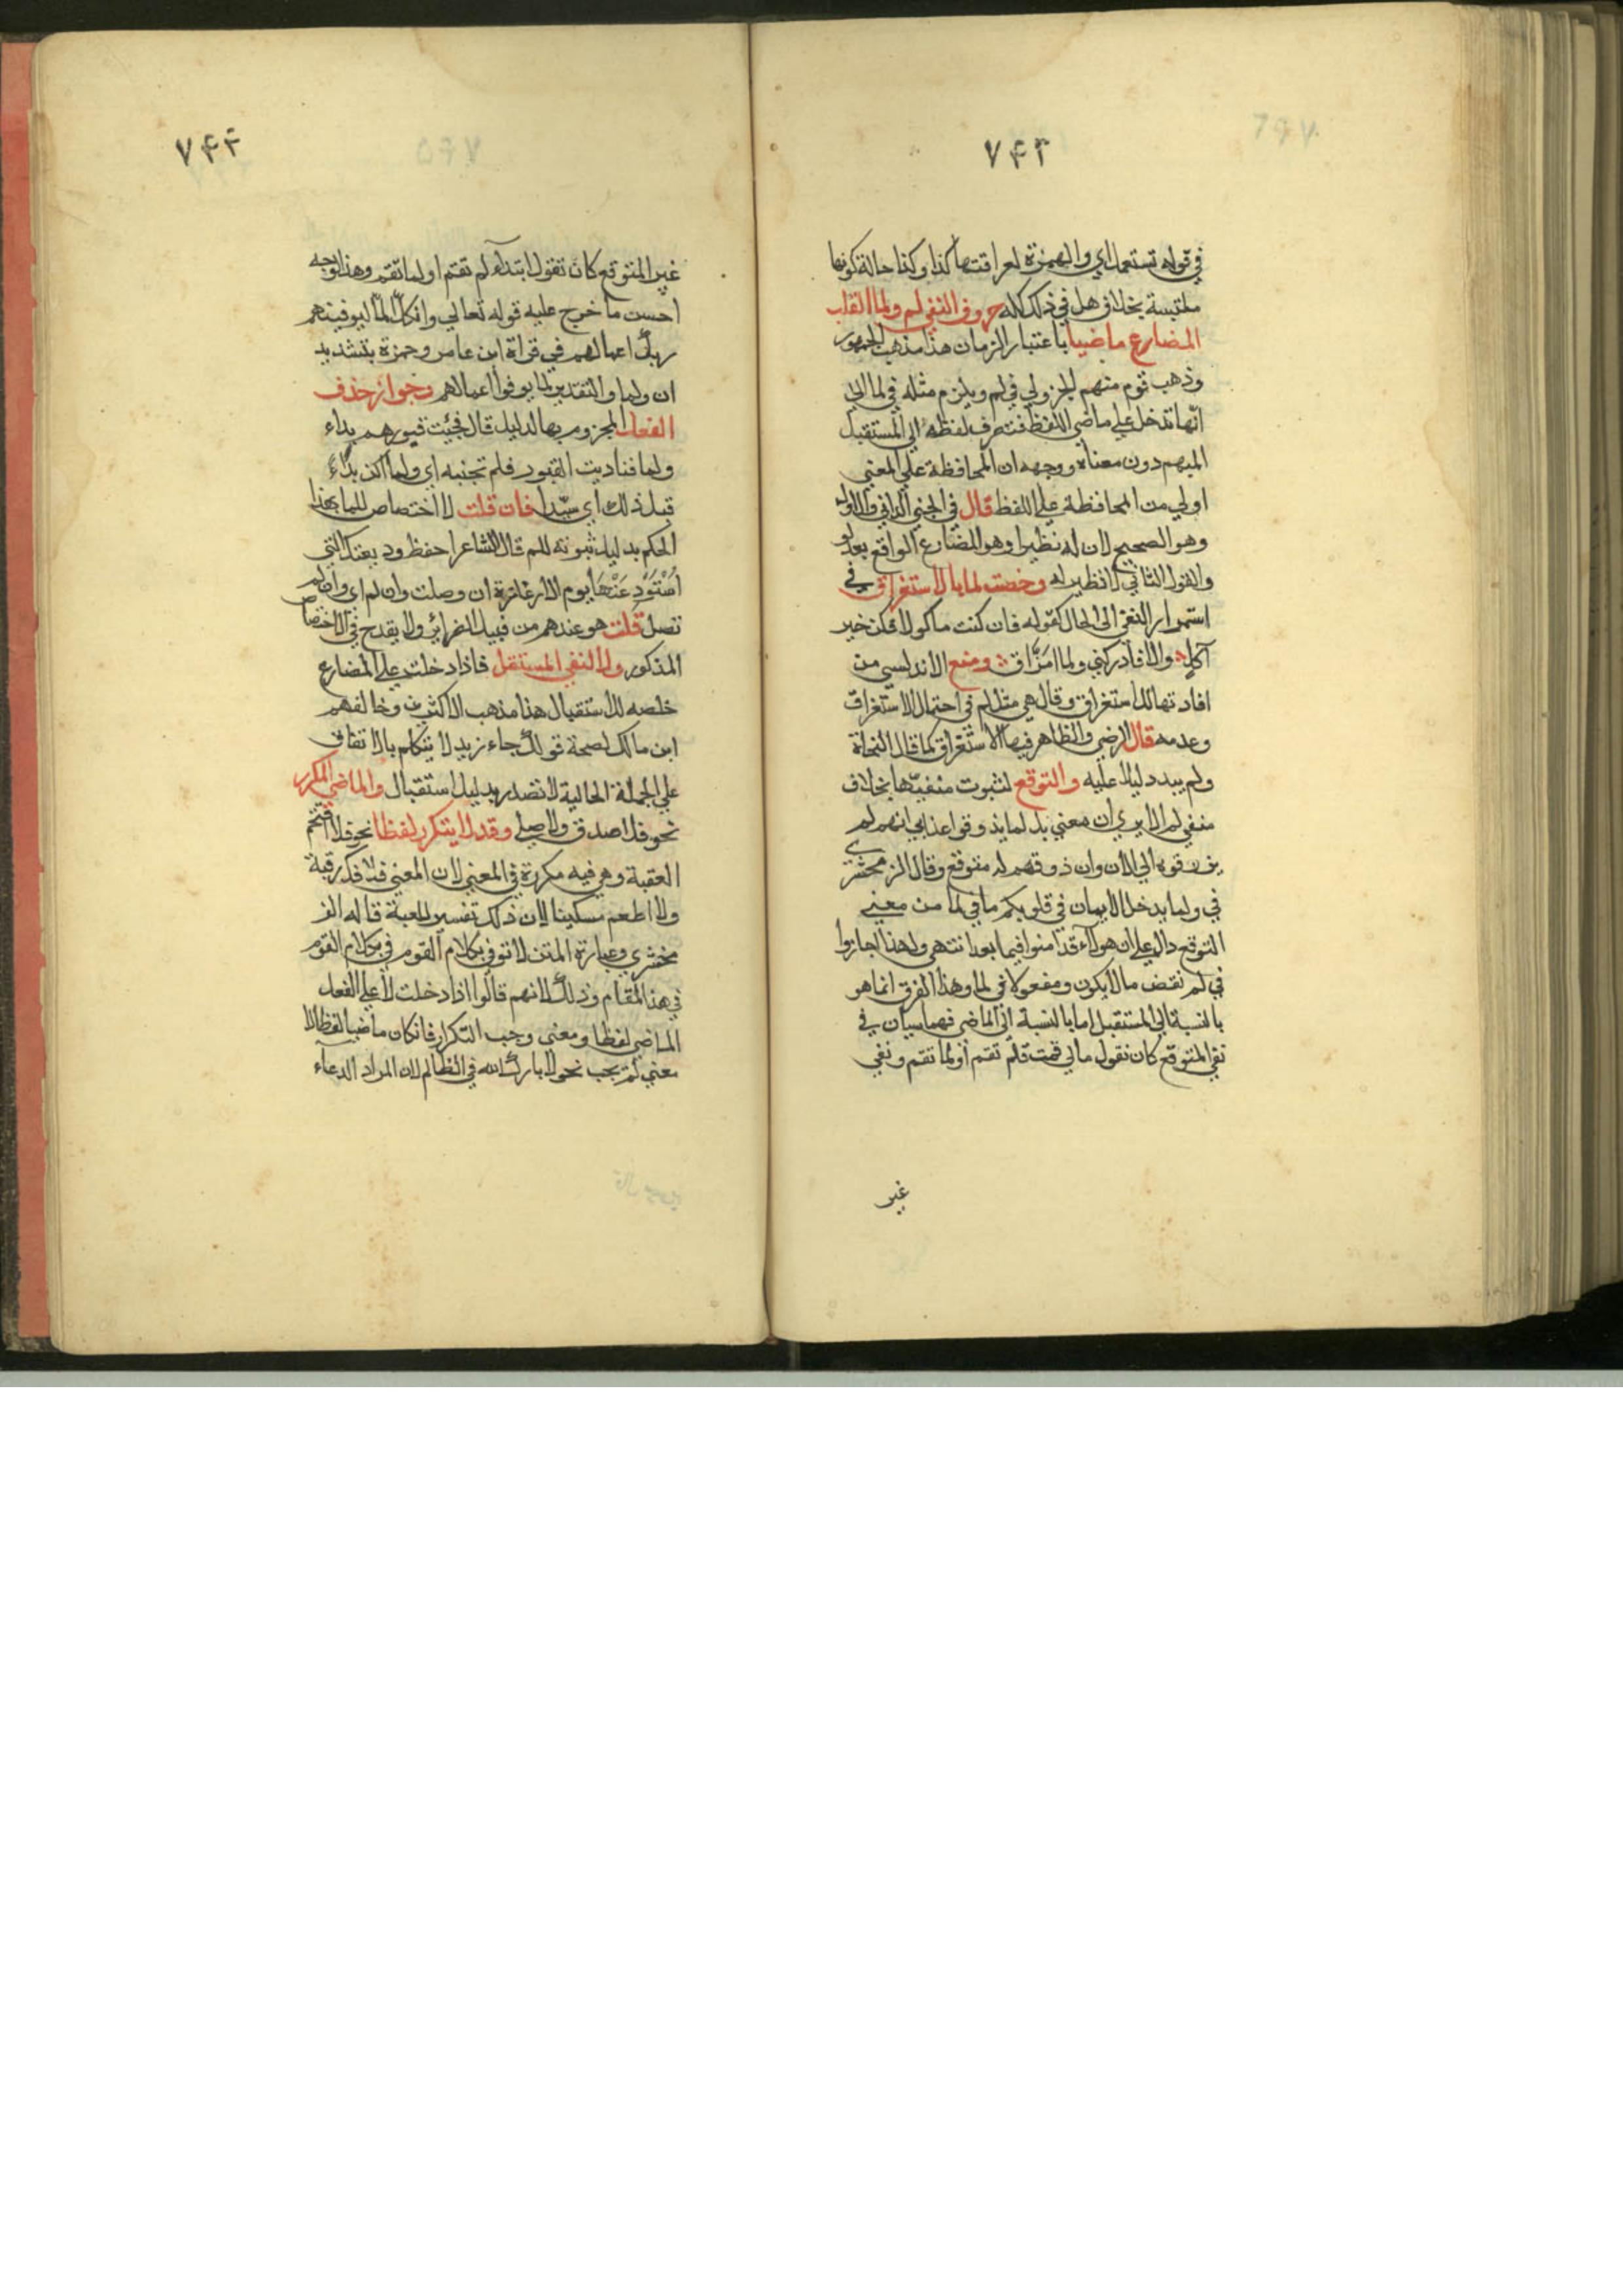 ٧٤٢
في قوله تستعمل اي والهمزة لعراقتها كذا وكذا حالة كونها
ملتبسة بخلاف هل في ذلك كله حروف النفي لم ولما القلب
المضارع ماضيا باعتبار الزمان هذا مذهب الجمهور
وذهب قوم منهم الجزولي في لم ويلزم مثله في لما الي
انها تدخل علي ماضي اللفظ فتصرف لفظه الي المستقبل
المبهم دون معناه ووجهه ان المحافظة علي المعني
اولي من المحافظة علي اللفظ قال في الجني الداني والاول
وهو الصحيح لان له نظيرا وهو المضارع الواقع بعد لو
والقول الثاني لا نظير له وخصت لما بالاستغراق في
استمرار النفي الي الحال كقوله فان كنت ماكولا فكن خير
آكل والا فادركني ولما امزق ومنع الاندلسي من
افادتها للاستغراق وقال هي مثل لم في احتمال الاستغراق
وعدمه قال الرضي والظاهر فيها الاستغراق كما قال النحاة
ولم يبد دليلا عليه والتوقع لثبوت منفيها بخلاف
منفي لم الا يري ان معني بل لما يذوقوا عذاب انهم لم
يذوقوه الي الان وان ذوقهم له متوقع وقال الزمخشري
في ولما يدخل الايمان في قلوبكم ما في لما من معني
التوقع دال علي ان هولاء قد امنوا فيما بعد انتهي ولهذا اجازوا
في لم نقض ما لا يكون ومفعولا في لما وهذا الفرق انما هو
بالنسبة الي المستقبل اما بالنسبة الي الماضي فهما سيان في
نفي المتوقع كان نقول مالي قمت فلم تقم او لما تقم ونفي
غير
٧٤٣
غير المتوقع كان تقول ابتداء لم تقم او لما تقم وهذا وجه
احسن ما خرج عليه قوله تعالي وان كلا لما ليوفينهم
ربك اعمالهم في قراة ابن عامر وحمزة بتشديد
ان ولما والتقدير لما يوفوا اعمالهم وجواز حذف
الفعل المجزوم بها لدليل قال فجئت قبورهم بداء
ولما فناديت القبور فلم تجبنه اي ولما اكن بداء
قبل ذلك اي سيدا فان قلت لا اختصاص للما بهذا
الحكم بدليل ثبوته للم قال الشاعر احفظ وديعتك التي
استودعنها يوم الاعازة ان وصلت وان لم اي وان لم
تصل قلت هو عندهم من قبيل الضرائر ولا يقدح في الاختصاص
المذكور ولا النفي المستقبل فاذا دخلت علي المضارع
خلصه للاستقبال هذا مذهب الاكثرين وخالفهم
ابن مالك لصحة قولك جاء زيد لا يتكلم بالاتفاق
علي الجملة الحالية لا تصدر بدليل استقبال والماضي المكرر
نحو فلا صدق ولا صلي وقد لا يتكرر لفظا نحو فلا اقتحم
العقبة وهي فيه مكررة في المعني لان المعني فلا فك رقبة
ولا اطعم مسكينا لان ذلك تفسير للعقبة قاله الز
مخشري وعبارة المتن لا توفي بكلام القوم
في هذا المقام وذلك لانهم قالوا اذا دخلت لا علي الفعل
الماضي لفظا ومعني وجب التكرار فان كان ماضيا لفظا لا
معني لم يجب نحو لا بارك الله في الظالم لان المراد الدعاء